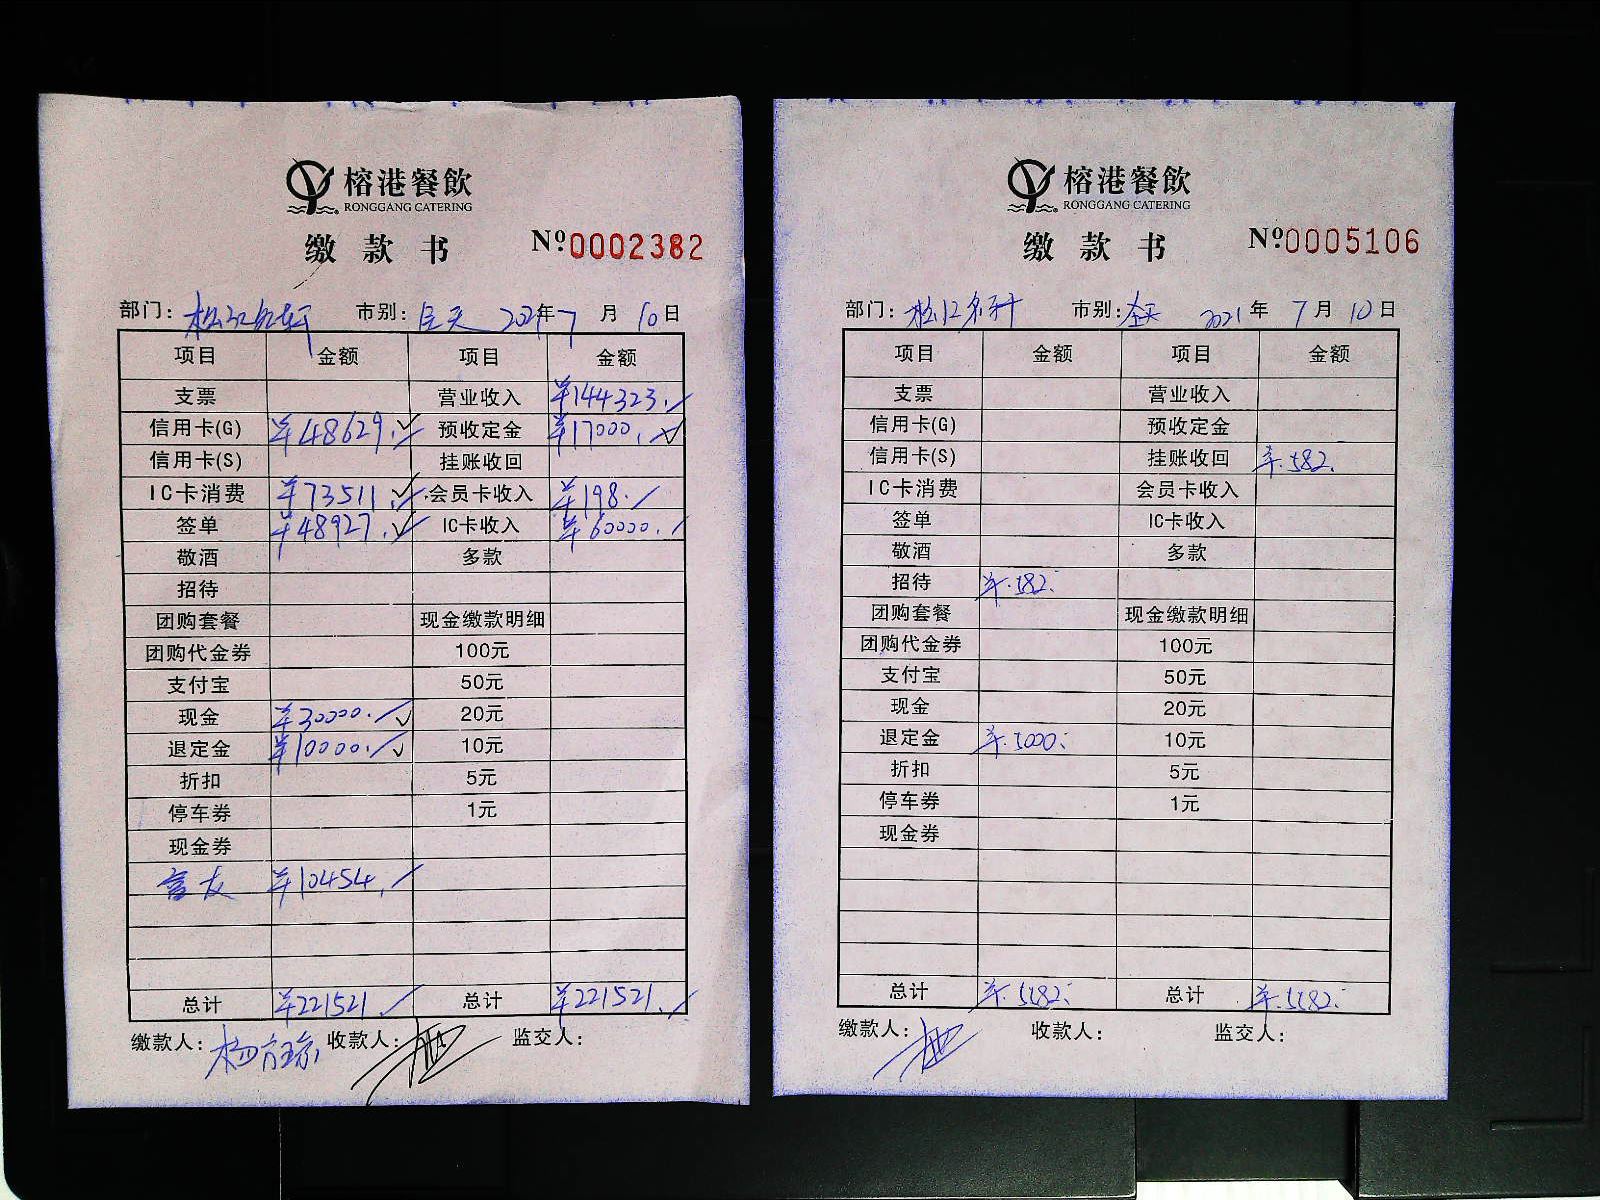 榕港餐飲
RONGGANG CATERING
缴款书 Nº0002382
部门: 松江名轩 市别: 全天 2021年7月10日
项目 金额 项目 金额
支票 营业收入 ¥144323.
信用卡(G) ¥48629. 预收定金 ¥17000.
信用卡(S) 挂账收回
IC卡消费 ¥73511. 会员卡收入 ¥198.
签单 ¥48927. IC卡收入 ¥60000.
敬酒 多款
招待
团购套餐 现金缴款明细
团购代金券 100元
支付宝 50元
现金 ¥30000. 20元
退定金 ¥10000. 10元
折扣 5元
停车券 1元
现金券
富友 ¥10454.
总计 ¥221521. 总计 ¥221521.
缴款人: 收款人: 监交人:
榕港餐飲
RONGGANG CATERING
缴款书 Nº0005106
部门: 松江名轩 市别: 全天 2021年7月10日
项目 金额 项目 金额
支票 营业收入
信用卡(G) 预收定金
信用卡(S) 挂账收回 ¥.582.
IC卡消费 会员卡收入
签单 IC卡收入
敬酒 多款
招待 ¥.582.
团购套餐 现金缴款明细
团购代金券 100元
支付宝 50元
现金 20元
退定金 10元
折扣 5元
停车券 1元
现金券
总计 总计
缴款人: 收款人: 监交人: